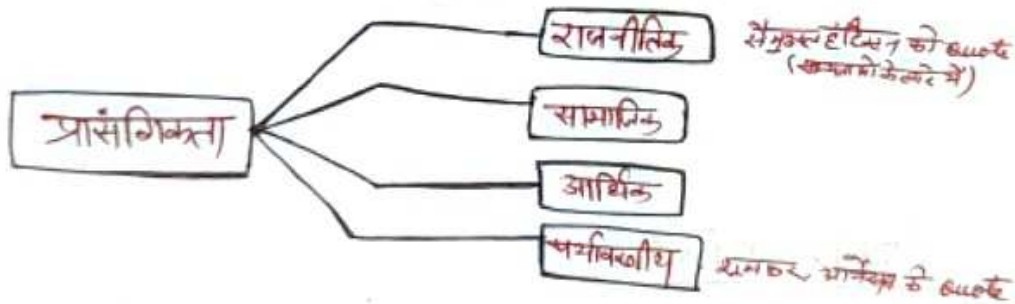 प्रासंगिकता
राजनीतिक
सैमुअल हंटिंगटन को quote
(सभ्यताओं के बारे में)
सामाजिक
आर्थिक
पर्यावरणीय
को quote